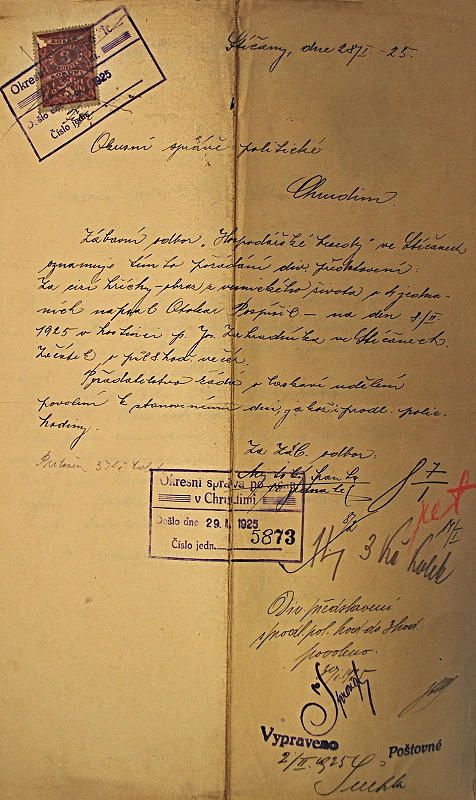 Okres
1925
Došlo dne
Číslo jedn.
Stíčany, dne 28/I - 25.
Okresní správě politické
Chrudim.
Zábavní odbor „Hospodářské besedy" ve Stíčanech
oznamuje tímto pořádání div. představení:
Za cizí hříchy - obraz z venkovského života o 4 jedna-
ních napsal Otokar Pospíšil - na den 8/II
1925 v hostinci p. Jos. Zahradníka ve Stíčanech.
Začátek o půl 8 hod. več.
Pořadatelstvo žádá o laskavé udělení
povolení k stanovenému dni, jakož i prodl. polic.
hodiny.
Za záb. odbor:
3 Kč kolek
Okresní správa po
v Chrudimi
Došlo dne 29. I. 1925
Číslo jedn. 5873
8 7/I
8/2
3 Kč kolek
Div. představení
s prodl. pol. hod do 3 hod.
povoleno.
Vypraveno
Poštovné
2/II 1925